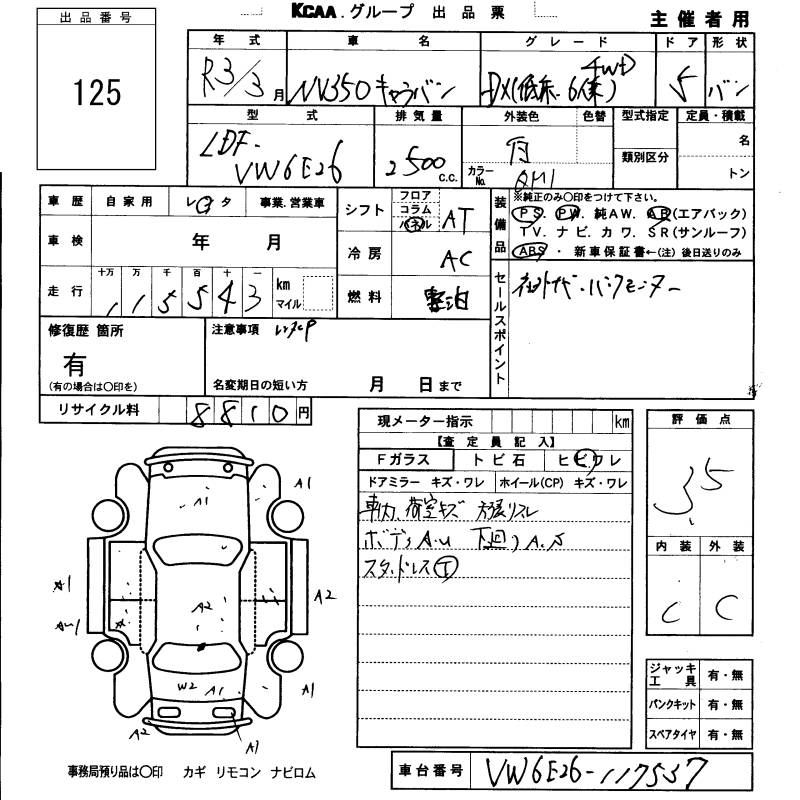 KCAA.グループ 出品票
主催者用
出品番号
125
年式 車名 グレード ドア 形状
R3/3月 NV350キャラバン DX(低床.6人乗) 4WD 5 バン
型式 排気量 外装色 色替 型式指定 定員・積載
LDF-VW6E26 2500 c.c. カラーNo. QM1 類別区分 名 トン
車歴 自家用 レンタ 事業.営業車
シフト フロア コラム パネル AT
装備品 ※純正のみ〇印をつけて下さい。
PS. PW. 純AW. AB(エアバック)
TV. ナビ. カワ. SR(サンルーフ)
ABS ・ 新車保証書←(注) 後日送りのみ
車検 年 月
冷房 AC
走行 十万 万 千 百 十 一
115543 km マイル
燃料 軽油
セールスポイント
修復歴 箇所
有
(有の場合は〇印を)
注意事項
名変期日の短い方 月 日まで
リサイクル料 8810円
現メーター指示 km
【査定員記入】
Fガラス トビ石 ヒビワレ
ドアミラー キズ・ワレ ホイール(CP) キズ・ワレ
車内、荷室キズ
ボディA.U 下廻りA.S
スタッドレス①
評価点
3.5
内装 外装
C C
A1 A1
A1 A2 A2
A1
W2 A1 A1
A2 A1
ジャッキ工具 有・無
パンクキット 有・無
スペアタイヤ 有・無
事務局預り品は〇印 カギ リモコン ナビロム
車台番号 VW6E26-117537